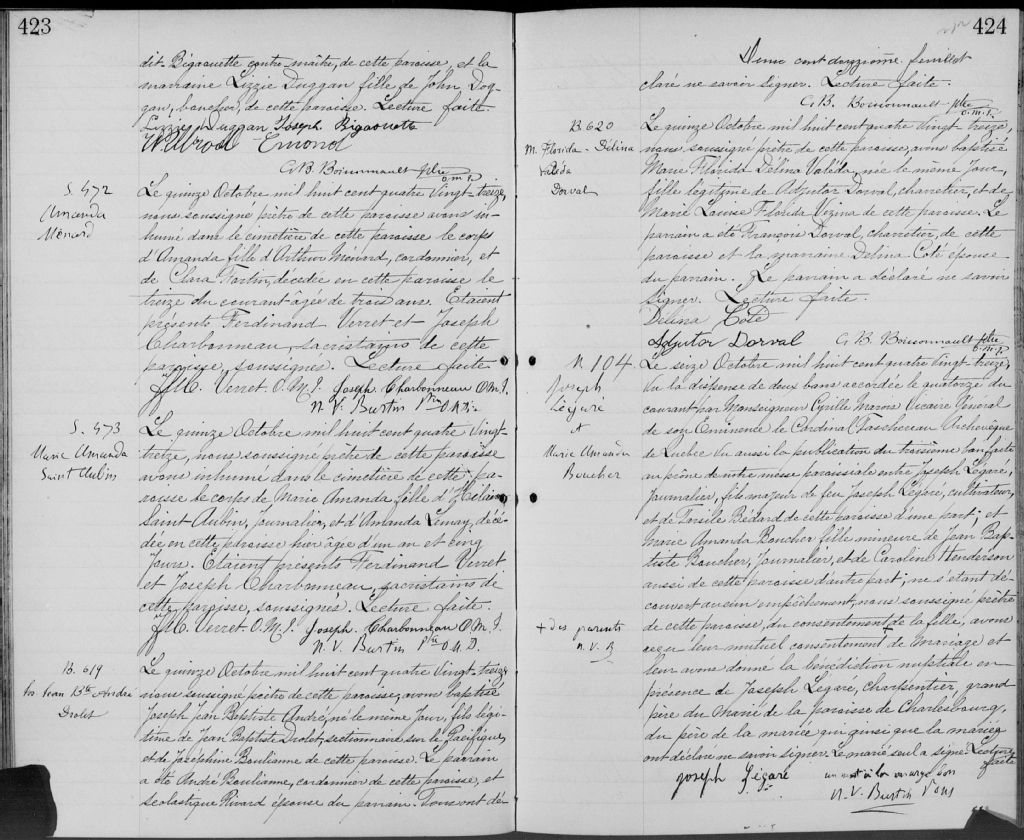 423
dit Bigaouette contre-maître, de cette paroisse, et la
marraine Lizzie Duggan fille de John Dog-
gan, de cette paroisse. Lecture faite
Lizzie Duggan Joseph Bigaouette
Wilbrod Emond
G. B. Boissonnault ptre
o.m.i.
S. 472
Amanda
Ménard
Le quinze Octobre mil huit cent quatre Vingt-treize,
nous soussigné prêtre de cette paroisse avons in-
humé dans le cimetière de cette paroisse le corps
d'Amanda fille d'Arthur Ménard, cordonnier, et
de Clara Fortin, décédée en cette paroisse le
treize du courant âgée de trois ans. Etaient
présents Ferdinand Verret et Joseph
Charbonneau, sacristains de cette
paroisse, soussignés. Lecture faite
Verret O.M.I. Joseph Charbonneau O.M.I.
N. V. Burtin Ptre O.M.I.
S. 473
Marie Amanda
Saint Aubin
Le quinze Octobre mil huit cent quatre Vingt-
treize, nous soussigné prêtre de cette paroisse
avons inhumé dans le cimetière de cette pa-
roisse le corps de Marie Amanda fille d'
Saint Aubin, Journalier, et d'Amanda Lemay, décé-
dée en cette paroisse hier âgée d'un an et cinq
Jours. Etaient présents Ferdinand Verret
et Joseph Charbonneau, sacristains de
cette paroisse, soussignés. Lecture faite.
Verret O.M.I. Joseph Charbonneau O.M.I.
N. V. Burtin Ptre O.M.I.
B. 619
Jos Jean Bte André
Drolet
Le quinze Octobre mil huit cent quatre Vingt-treize
nous soussigné prêtre de cette paroisse, avons baptisé
Joseph Jean Baptiste André, né le même Jour, fils légi-
time de Jean Baptiste Drolet, sectionnaire sur le Pacifique,
et de Joséphine Boulianne de cette paroisse. Le parrain
a été André Boulianne, cordonnier de cette paroisse, et
Scolastique Rivard épouse du parrain. Tous ont dé-
424
Deux cent douzième feuillet
claré ne savoir signer. Lecture faite.
G. B. Boissonnault ptre
o.m.i.
B. 620
M. Florida - Délina
Valéda
Dorval
Le quinze Octobre mil huit cent quatre Vingt-treize,
nous soussigné prêtre de cette paroisse, avons baptisé
Marie Florida Délina Valéda, née le même Jour,
fille légitime de Adjutor Dorval, charretier, et de
Marie Louise Florida Vezina de cette paroisse. Le
parrain a été François Dorval, charretier, de cette
paroisse et la marraine Délina Coté épouse
du parrain. Le parrain a déclaré ne savoir
signer. Lecture faite.
Délina Coté
Adjutor Dorval G. B. Boissonnault ptre
o.m.i.
M. 104
Joseph
Légaré
et
Marie Amanda
Boucher
Le seize Octobre mil huit cent quatre vingt treize,
vu la dispense de deux bans accordée le quatorze du
courant par Monseigneur Cyrille Marois Vicaire Général
de son Eminence le Cardinal Taschereau Archevêque
de Québec vu aussi la publication du troisième ban faite
au prône de notre messe paroissiale entre Joseph Légaré,
Journalier, fils majeur de feu Joseph Légaré, cultivateur,
et de Tarsile Bédard de cette paroisse d'une part; et
Marie Amanda Boucher fille mineure de Jean Bap-
tiste Boucher, Journalier, et de Caroline Henderson
aussi de cette paroisse d'autre part; ne s'étant dé-
couvert aucun empêchement, nous soussigné prêtre
de cette paroisse, du consentement + de la fille, avons
reçu leur mutuel consentement de mariage et
leur avons donné la bénédiction nuptiale en
présence de Joseph Legaré, charpentier, grand
père du Marié de la paroisse de Charlesbourg,
du père de la mariée qui ainsi que la mariée
ont déclaré ne savoir signer. Le marié seul a signé Lecture
faite
+ des parents
N. V. B
joseph Légaré
un mot à la marge bon
N. V. Burtin